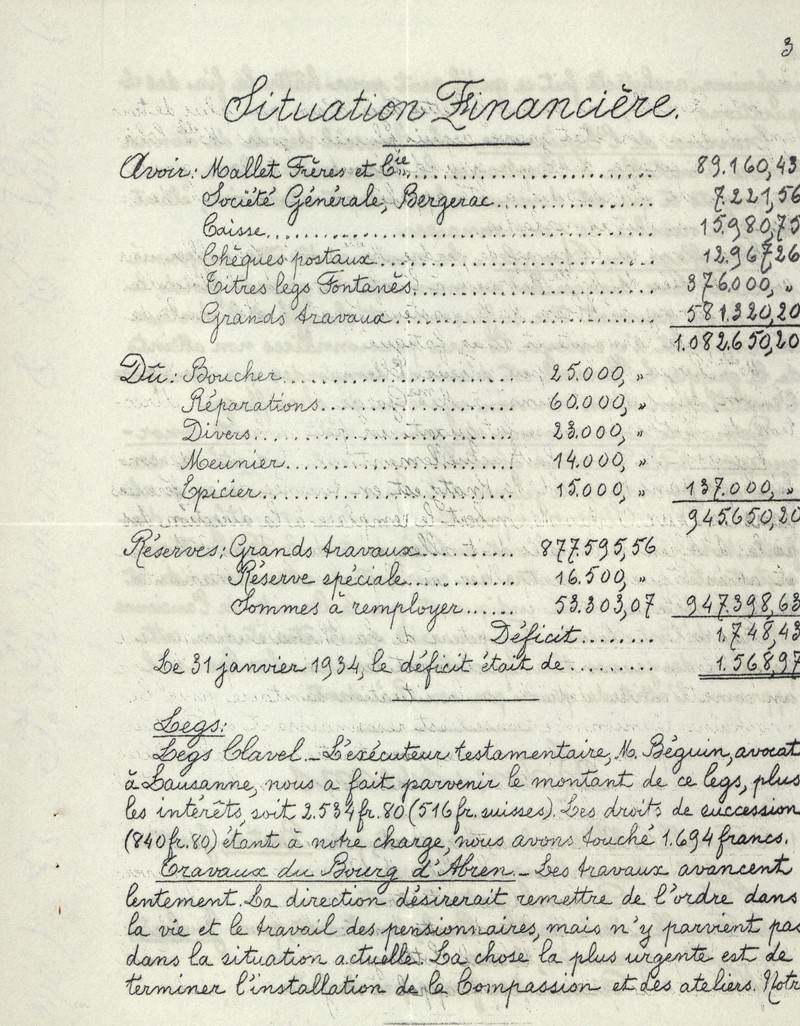 3
Situation Financière.
Avoir: Mallet Frères et Cie........................... 89.160,43
Société Générale, Bergerac................... 7.221,56
Caisse............................................... 15.980,75
Chèques postaux................................. 12.967,26
Titres legs Fontanès............................ 376.000, "
Grands travaux................................... 581.320,20
1.082.650,20
Dû: Boucher.......................... 25.000, "
Réparations....................... 60.000, "
Divers................................ 23.000, "
Meunier............................ 14.000, "
Epicier.............................. 15.000, " 137.000, "
945.650,20
Réserves: Grands travaux........... 877.595,56
Réserve spéciale............ 16.500, "
Sommes à remployer...... 53.303,07 947.398,63
Déficit........ 1.748,43
Le 31 janvier 1934, le déficit était de......... 1.568,97
Legs:
Legs Clavel._ L'exécuteur testamentaire, M. Béguin, avocat
à Lausanne, nous a fait parvenir le montant de ce legs, plus
les intérêts, soit 2.534 fr. 80 (516 fr. suisses). Les droits de succession
(840 fr. 80) étant à notre charge, nous avons touché 1.694 francs.
Travaux du Bourg d'Abren._ Les travaux avancent
lentement. La direction désirerait remettre de l'ordre dans
la vie et le travail des pensionnaires, mais n'y parvient pas
dans la situation actuelle. La chose la plus urgente est de
terminer l'installation de la Compassion et des ateliers. Notr